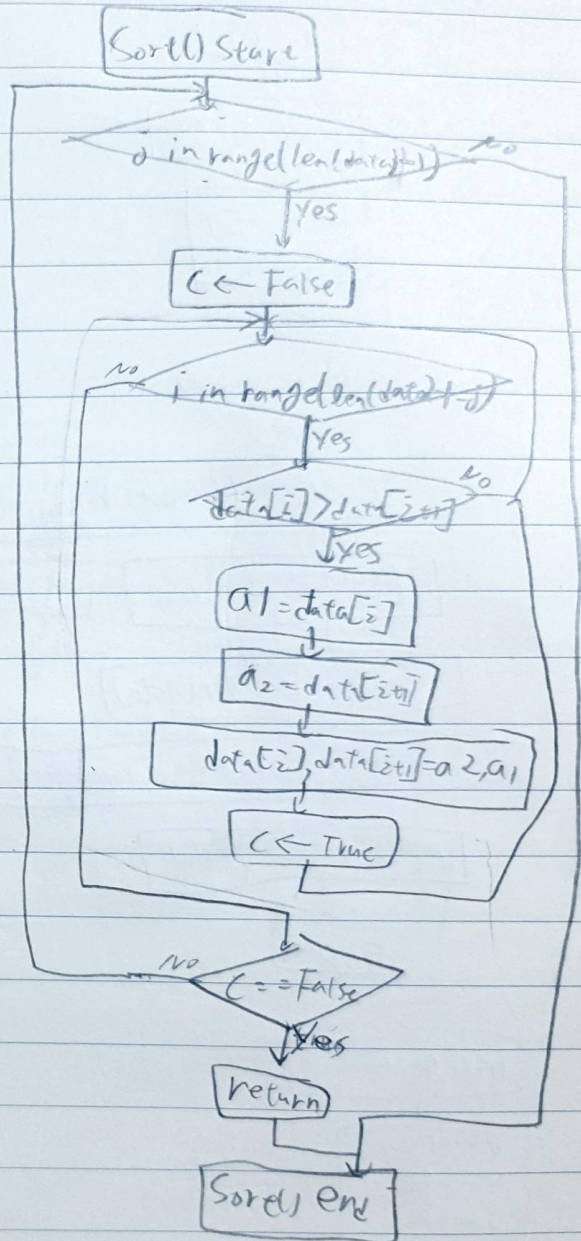 Sort() Start
j in range(len(data)-1)
No
Yes
C ← False
No
i in range(len(data)-1-j)
Yes
No
data[i]>data[i+1]
Yes
a1=data[i]
a2=data[i+1]
data[i],data[i+1]=a2,a1
C ← True
No
C==False
Yes
return
Sort() end